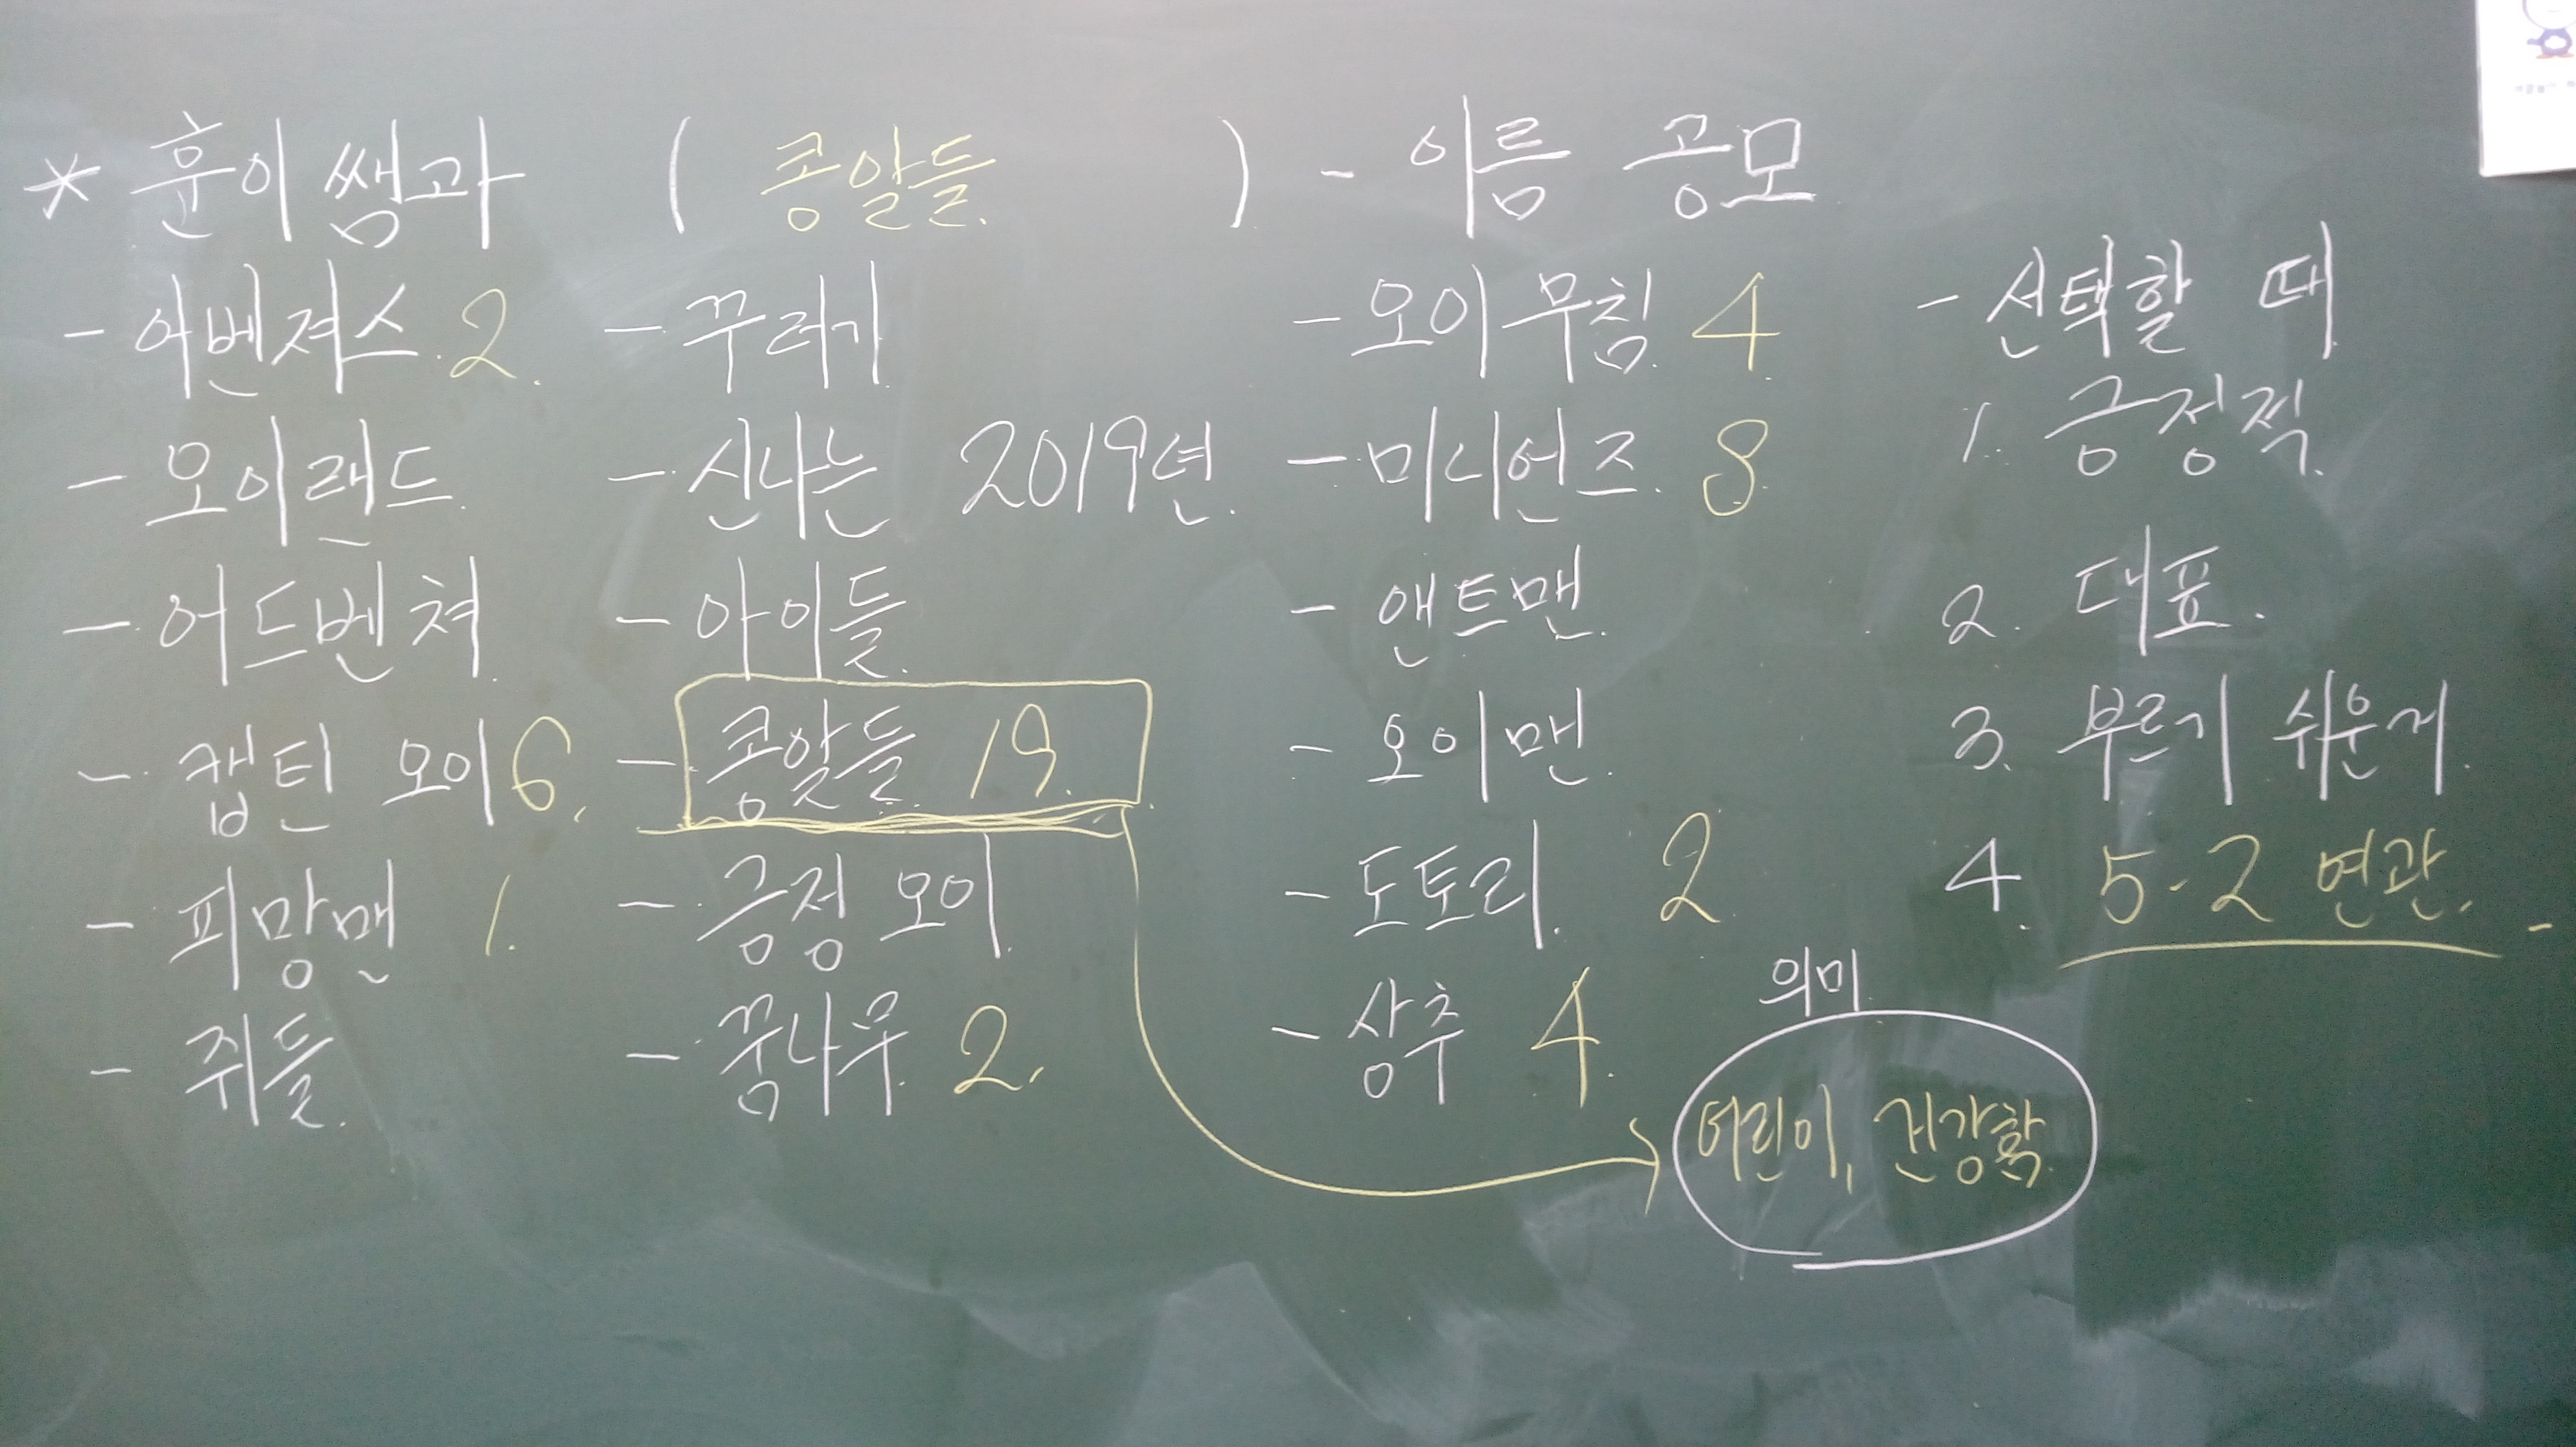 * 훈이쌤과 ( 콩알들. ) - 이름 공모
- 어벤져스. 2.
- 오이랜드.
- 어드벤쳐.
- 캡틴 오이 6.
- 피망맨 1.
- 쥐들.
- 꾸러기.
- 신나는 2019년.
- 아이들.
- 콩알들. 19.
- 긍정 오이.
- 꿈나무. 2.
- 오이무침. 4.
- 미니언즈. 8.
- 앤트맨.
- 오이맨.
- 도토리. 2.
- 상추 4.
- 선택할 때.
1. 긍정적.
2. 대표.
3. 부르기 쉬운거.
4. 5-2 연관.
의미.
어린이, 건강함.